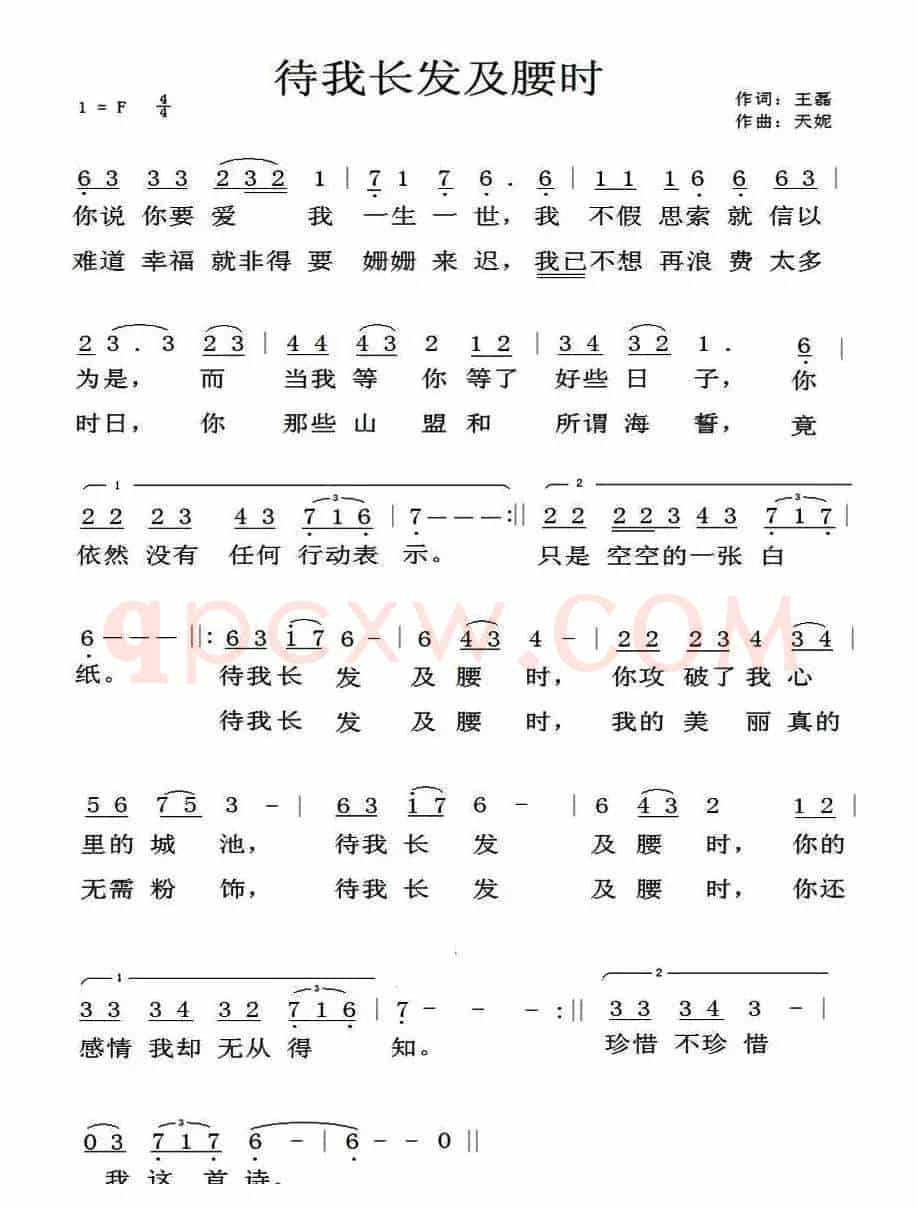 待我长发及腰时
1 = F 4/4
作词：王磊
作曲：天妮
6 3 3 3 2 3 2 1 | 7 1 7 6 . 6 | 1 1 1 6 6 6 3 |
你说 你要 爱 我 一生 一 世，我 不假 思索 就 信以
难道 幸福 就非得 要 姗姗 来 迟，我已不想 再浪 费 太多
2 3 . 3 2 3 | 4 4 4 3 2 1 2 | 3 4 3 2 1 . 6 |
为是， 而 当我 等 你 等了 好些 日 子， 你
时日， 你 那些 山 盟 和 所谓 海 誓， 竟
1 2
2 2 2 3 4 3 7 1 6 | 7 - - - :|| 2 2 2 2 3 4 3 7 1 7 |
3 3
依然 没有 任何 行动表 示。 只是 空空的一张 白
6 - - - ||: 6 3 i 7 6 - | 6 4 3 4 - | 2 2 2 3 4 3 4 |
纸。 待我 长 发 及 腰 时， 你攻 破了 我 心
待我 长 发 及 腰 时， 我的 美 丽 真的
qpcxw.COM
5 6 7 5 3 - | 6 3 i 7 6 - | 6 4 3 2 1 2 |
里的 城 池， 待我 长 发 及 腰 时， 你的
无需 粉 饰， 待我 长 发 及 腰 时， 你还
1 2
3 3 3 4 3 2 7 1 6 | 7 - - - :|| 3 3 3 4 3 - |
3
感情 我却 无从 得 知。 珍惜 不珍 惜
3
0 3 7 1 7 6 - | 6 - 0 ||
我 这 首 诗。